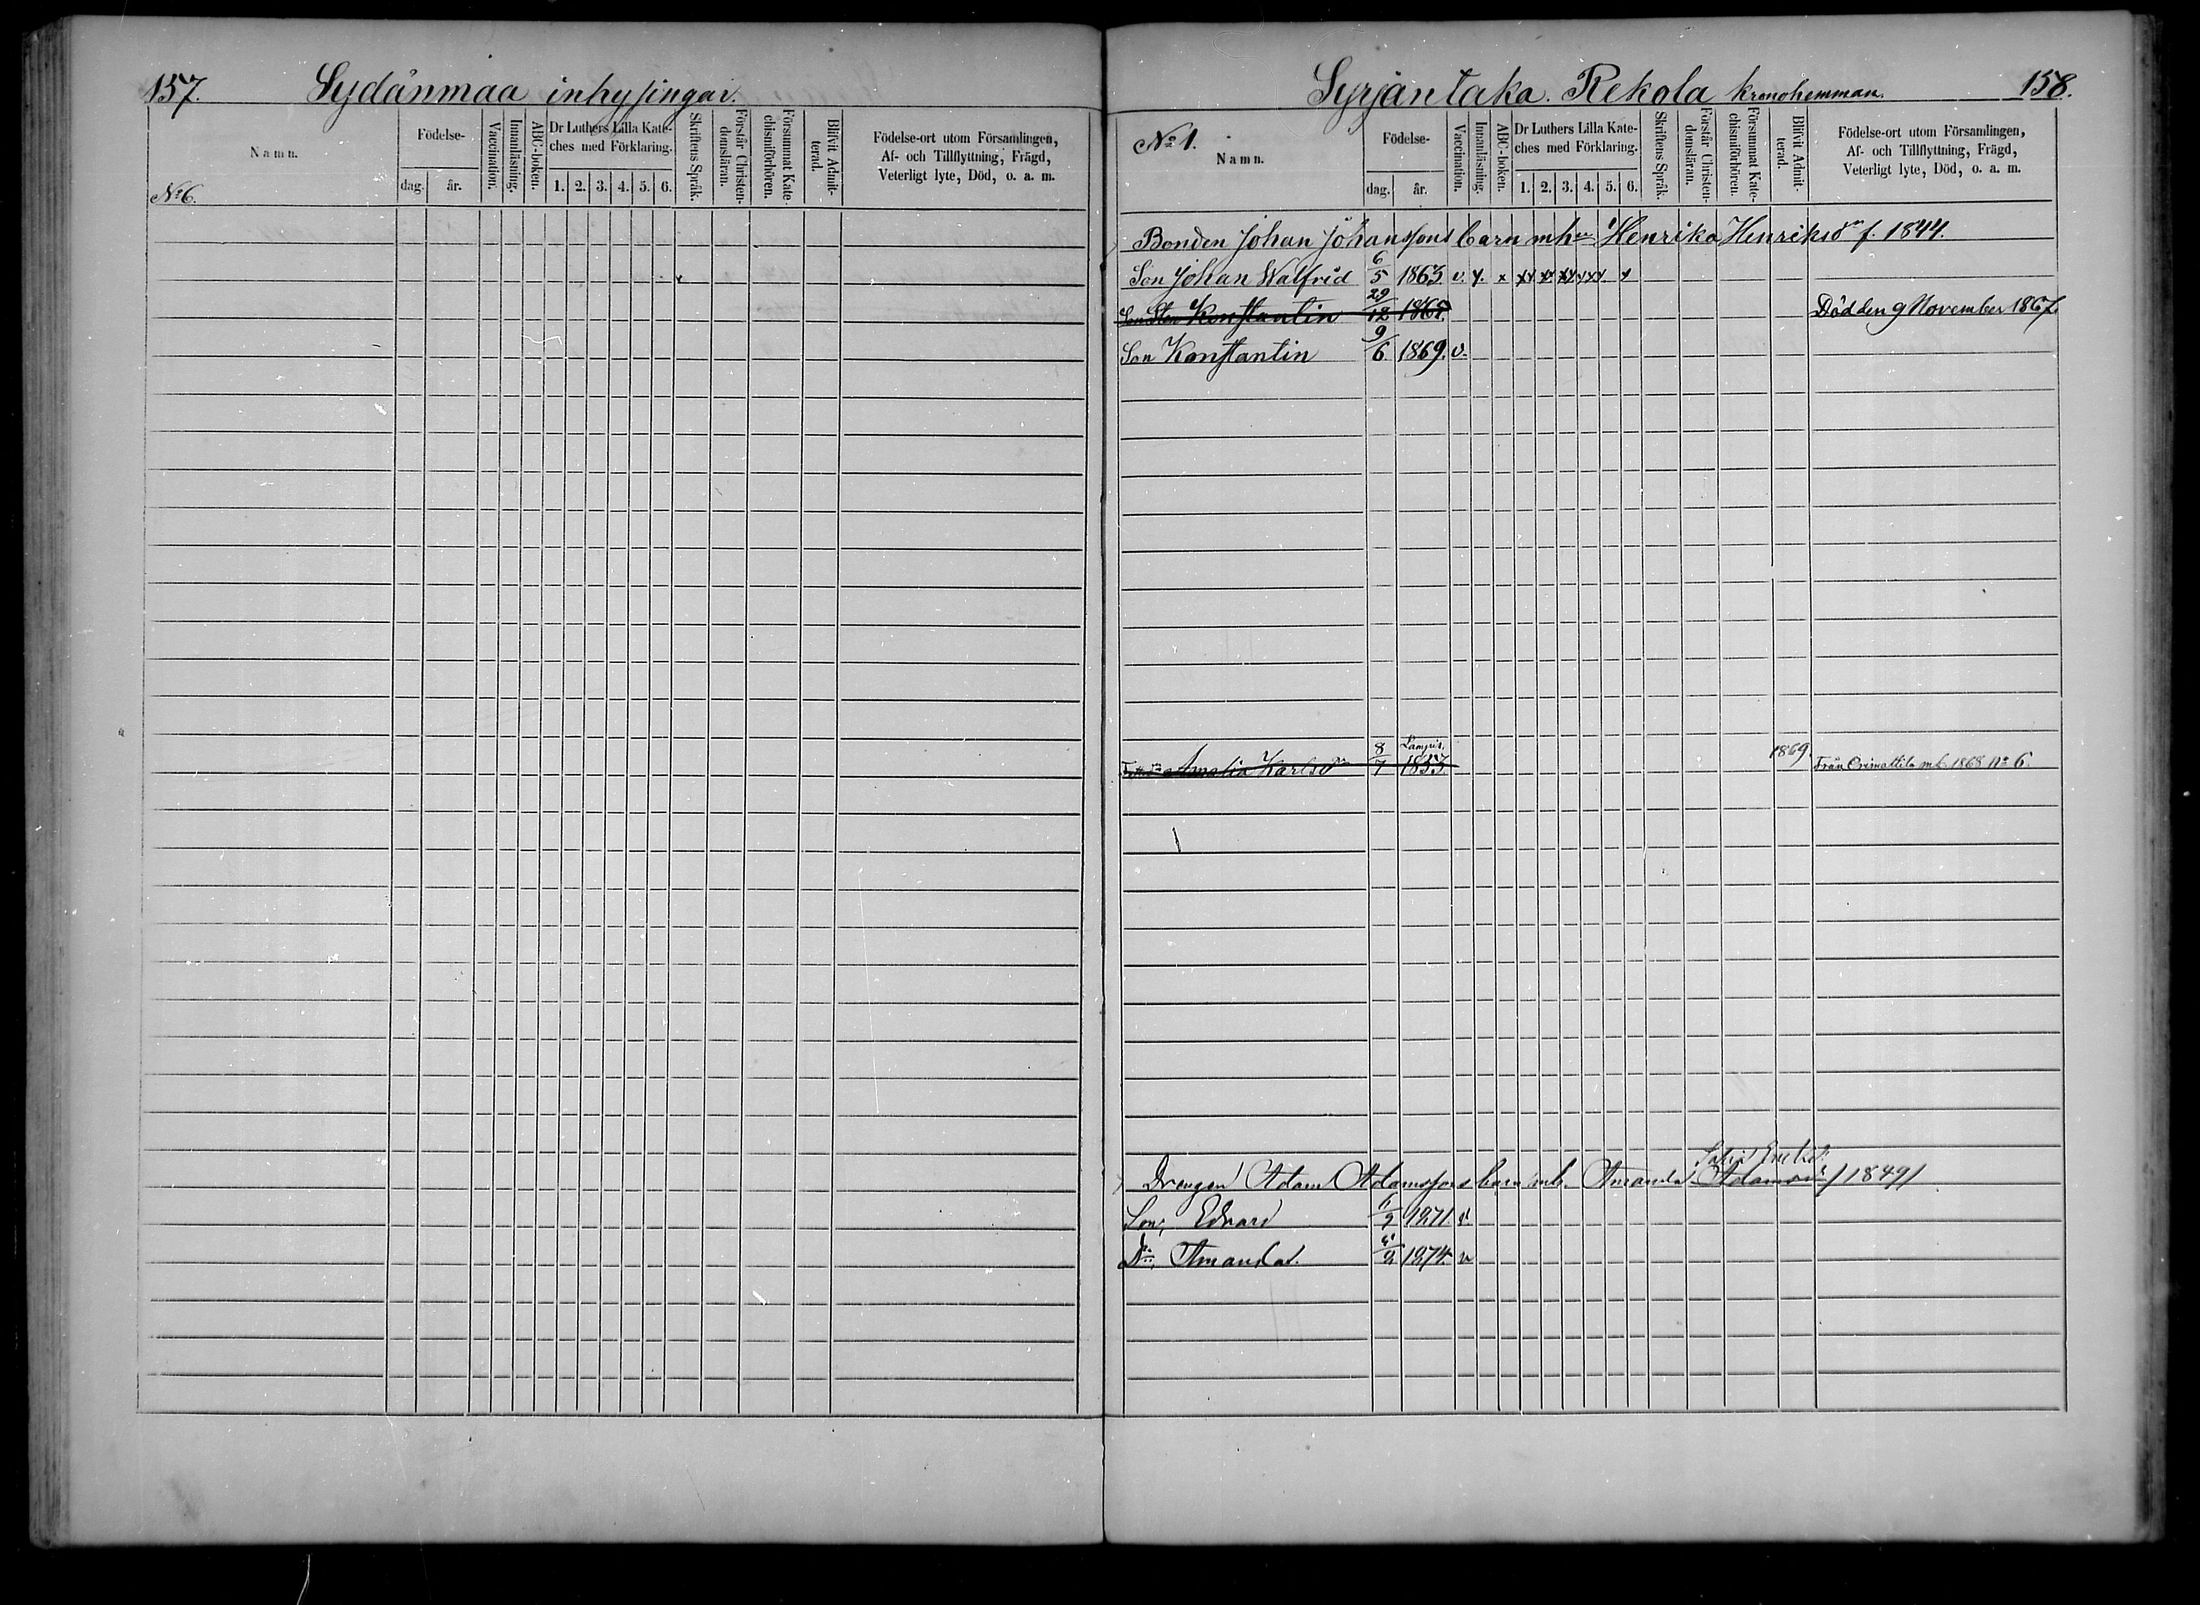 157. Sydänmaa inhysingar.
Namn.
No 6.
Födelse-
dag. år.
Vaccination.
Innanläsning.
ABC-boken.
Dr Luthers Lilla Kate-
ches med Förklaring.
1. 2. 3. 4. 5. 6.
Skriftens Språk.
Förstår Christen-
domsläran.
Försummat Kate-
chismiförhören.
Blifvit Admit-
terad.
Födelse-ort utom Församlingen,
Af- och Tillflyttning, Frägd,
Veterligt lyte, Död, o. a. m.
Syrjäntaka. Rekola kronohemman. 158.
No 1.
Namn.
Födelse-
dag. år.
Vaccination.
Innanläsning.
ABC-boken.
Dr Luthers Lilla Kate-
ches med Förklaring.
1. 2. 3. 4. 5. 6.
Skriftens Språk.
Förstår Christen-
domsläran.
Försummat Kate-
chismiförhören.
Blifvit Admit-
terad.
Födelse-ort utom Församlingen,
Af- och Tillflyttning, Frägd,
Veterligt lyte, Död, o. a. m.
Bonden Johan Johanssons barn mh Henrika Henriksdr f. 1844.
Son Johan Walfrid 6/5 1863 v. x. x xx xx xx xxx x
Son Konstantin 29/12 1865. Död den 9 November 1867.
Son Konstantin 9/6 1869. v.
Amalia Karlsdr 8/7 Lampis. 1853. 1869. Från Orimattila mb. 1868 No 6.
Drengen Adam Adamssons barn mh. Amanda Adamsdr f 1849
Son, Edvard 6/9 1871 v
Dr, Amanda 1874. v